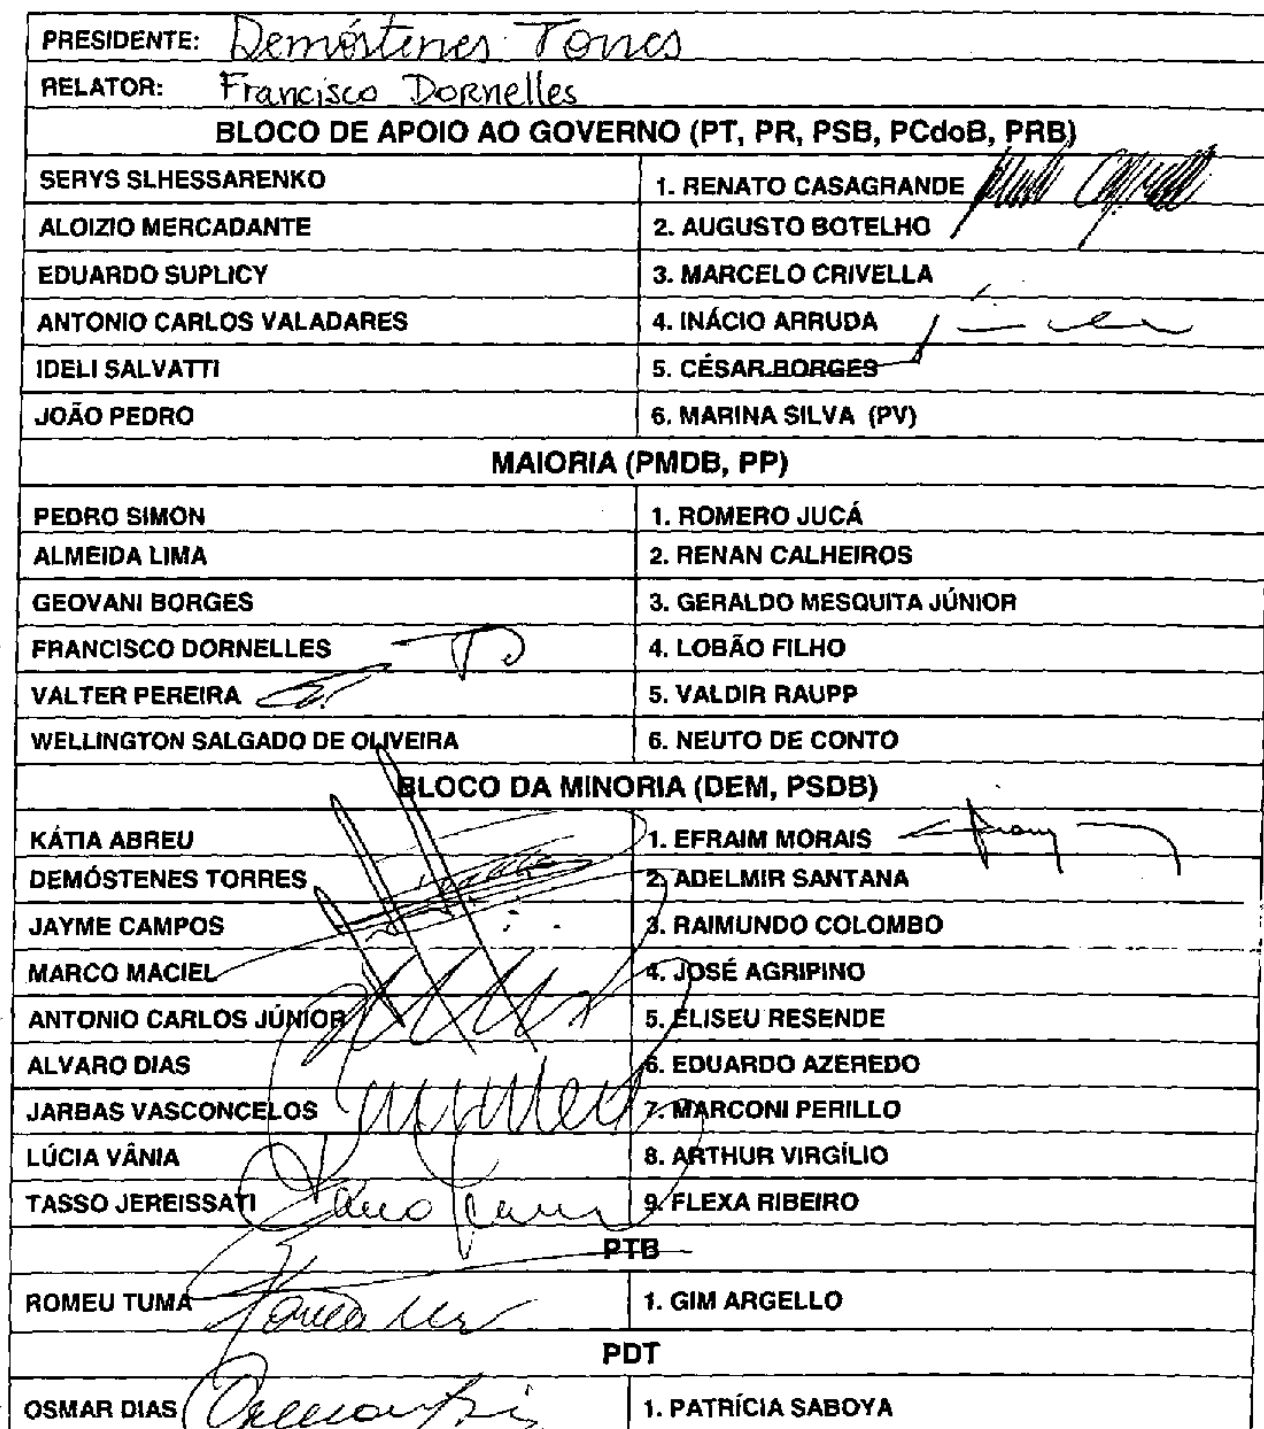 PRESIDENTE: Demóstenes Torres
RELATOR: Francisco Dornelles
BLOCO DE APOIO AO GOVERNO (PT, PR, PSB, PCdoB, PRB)
SERYS SLHESSARENKO 1. RENATO CASAGRANDE
ALOIZIO MERCADANTE 2. AUGUSTO BOTELHO
EDUARDO SUPLICY 3. MARCELO CRIVELLA
ANTONIO CARLOS VALADARES 4. INÁCIO ARRUDA
IDELI SALVATTI 5. CÉSAR BORGES
JOÃO PEDRO 6. MARINA SILVA (PV)
MAIORIA (PMDB, PP)
PEDRO SIMON 1. ROMERO JUCÁ
ALMEIDA LIMA 2. RENAN CALHEIROS
GEOVANI BORGES 3. GERALDO MESQUITA JÚNIOR
FRANCISCO DORNELLES 4. LOBÃO FILHO
VALTER PEREIRA 5. VALDIR RAUPP
WELLINGTON SALGADO DE OLIVEIRA 6. NEUTO DE CONTO
BLOCO DA MINORIA (DEM, PSDB)
KÁTIA ABREU 1. EFRAIM MORAIS
DEMÓSTENES TORRES 2. ADELMIR SANTANA
JAYME CAMPOS 3. RAIMUNDO COLOMBO
MARCO MACIEL 4. JOSÉ AGRIPINO
ANTONIO CARLOS JÚNIOR 5. ELISEU RESENDE
ALVARO DIAS 6. EDUARDO AZEREDO
JARBAS VASCONCELOS 7. MARCONI PERILLO
LÚCIA VÂNIA 8. ARTHUR VIRGÍLIO
TASSO JEREISSATI 9. FLEXA RIBEIRO
PTB
ROMEU TUMA 1. GIM ARGELLO
PDT
OSMAR DIAS 1. PATRÍCIA SABOYA